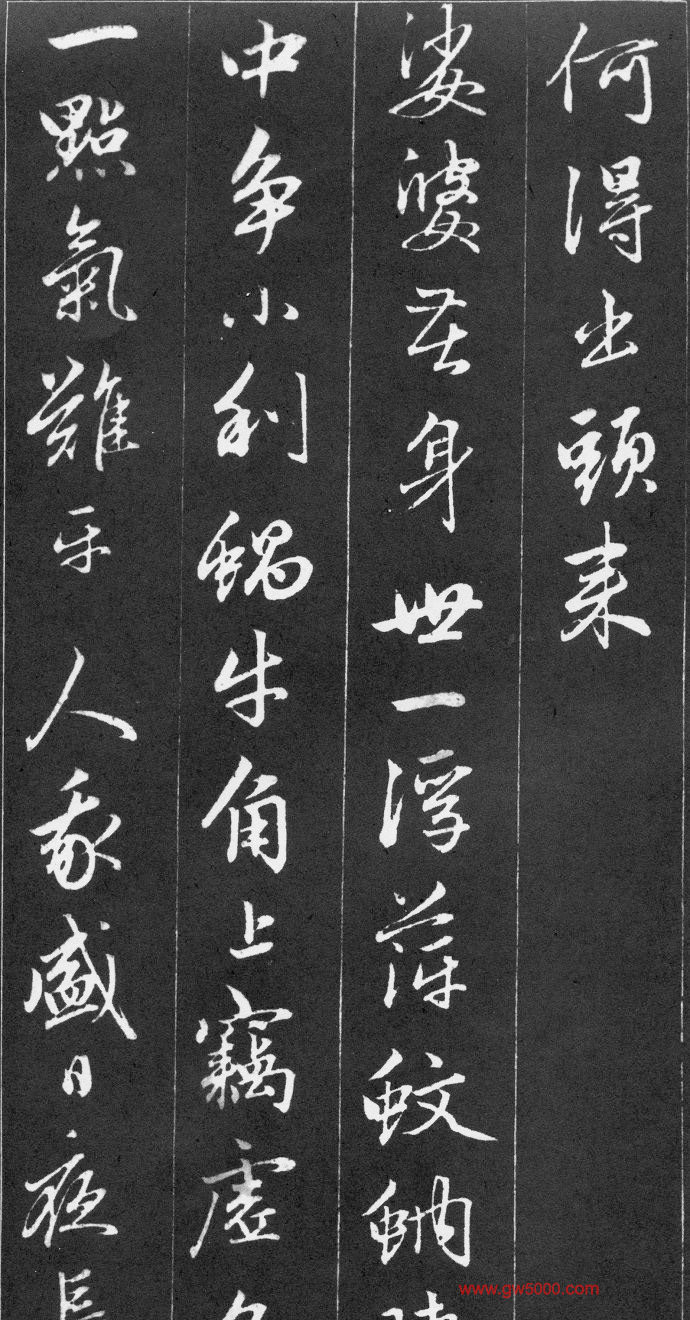 何得出頭来
娑婆苦身世一浮萍蚊蚋
中争小利蝸牛角上竊虛
一點氣難平人我盛日夜長
www.gw5000.com